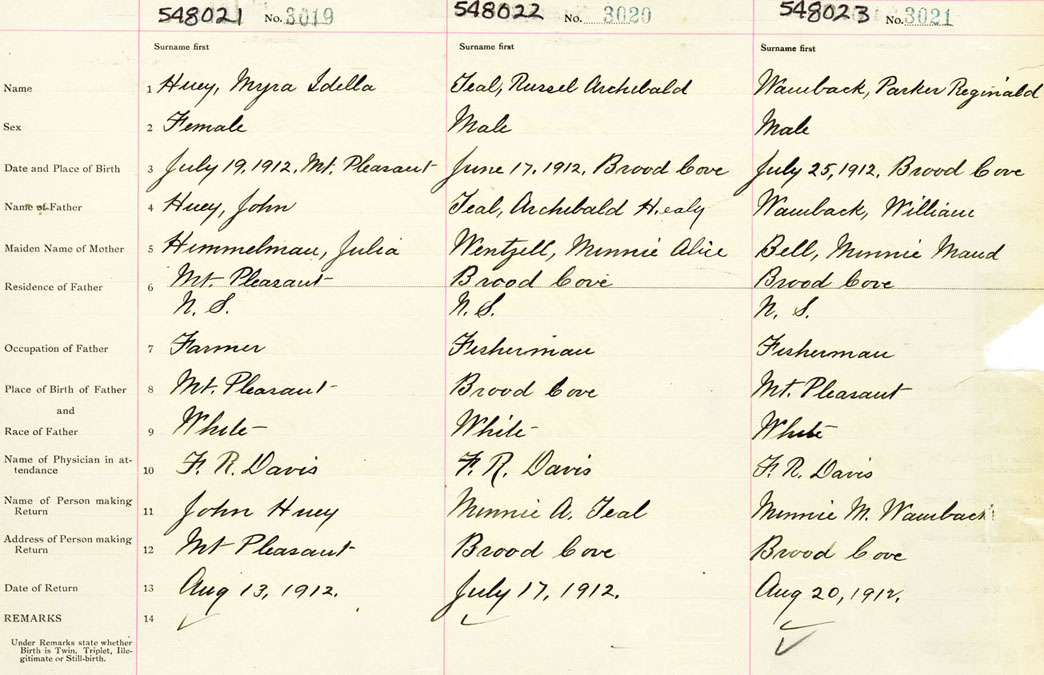 548021 No. 3019 548022 No. 3020 548023 No. 3021
Surname first Surname first Surname first
Name 1 Huey, Myra Idella Teal, Russel Archibald Wamback, Parker Reginald
Sex 2 Female Male Male
Date and Place of Birth 3 July 19, 1912, Mt. Pleasant June 17, 1912, Brood Cove July 25, 1912, Brood Cove
Name of Father 4 Huey, John Teal, Archibald Healy Wamback, William
Maiden Name of Mother 5 Himmelman, Julia Wentzell, Minnie Alice Bell, Minnie Maud
Residence of Father 6 Mt. Pleasant Brood Cove Brood Cove
N. S. N. S. N. S.
Occupation of Father 7 Farmer Fisherman Fisherman
Place of Birth of Father 8 Mt. Pleasant Brood Cove Mt. Pleasant
and
Race of Father 9 White White White
Name of Physician in at-
tendance 10 F. R. Davis F. R. Davis F. R. Davis
Name of Person making
Return 11 John Huey Minnie A. Teal Minnie M. Wamback
Address of Person making
Return 12 Mt Pleasant Brood Cove Brood Cove
Date of Return 13 Aug 13, 1912. July 17, 1912. Aug 20, 1912.
REMARKS 14
Under Remarks state whether
Birth is Twin, Triplet, Ille-
gitimate or Still-birth.